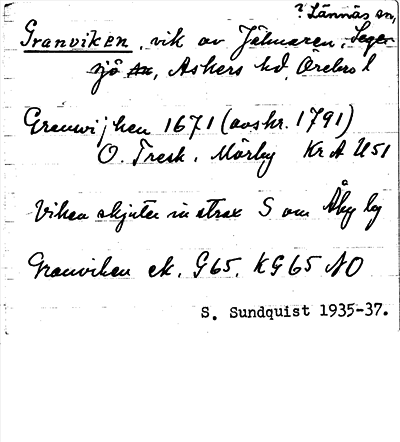 ? Lännäs sn,
Granviken, vik av Jälmaren, Seger-
sjö sn, Askers hd, Örebro l
Granwijken 1671 (avskr. 1791)
O. Tresk. Mörby KrA U51
Viken skjuter in strax S om Åby by
Granviken ek. G65. KG65 NO
S. Sundquist 1935-37.